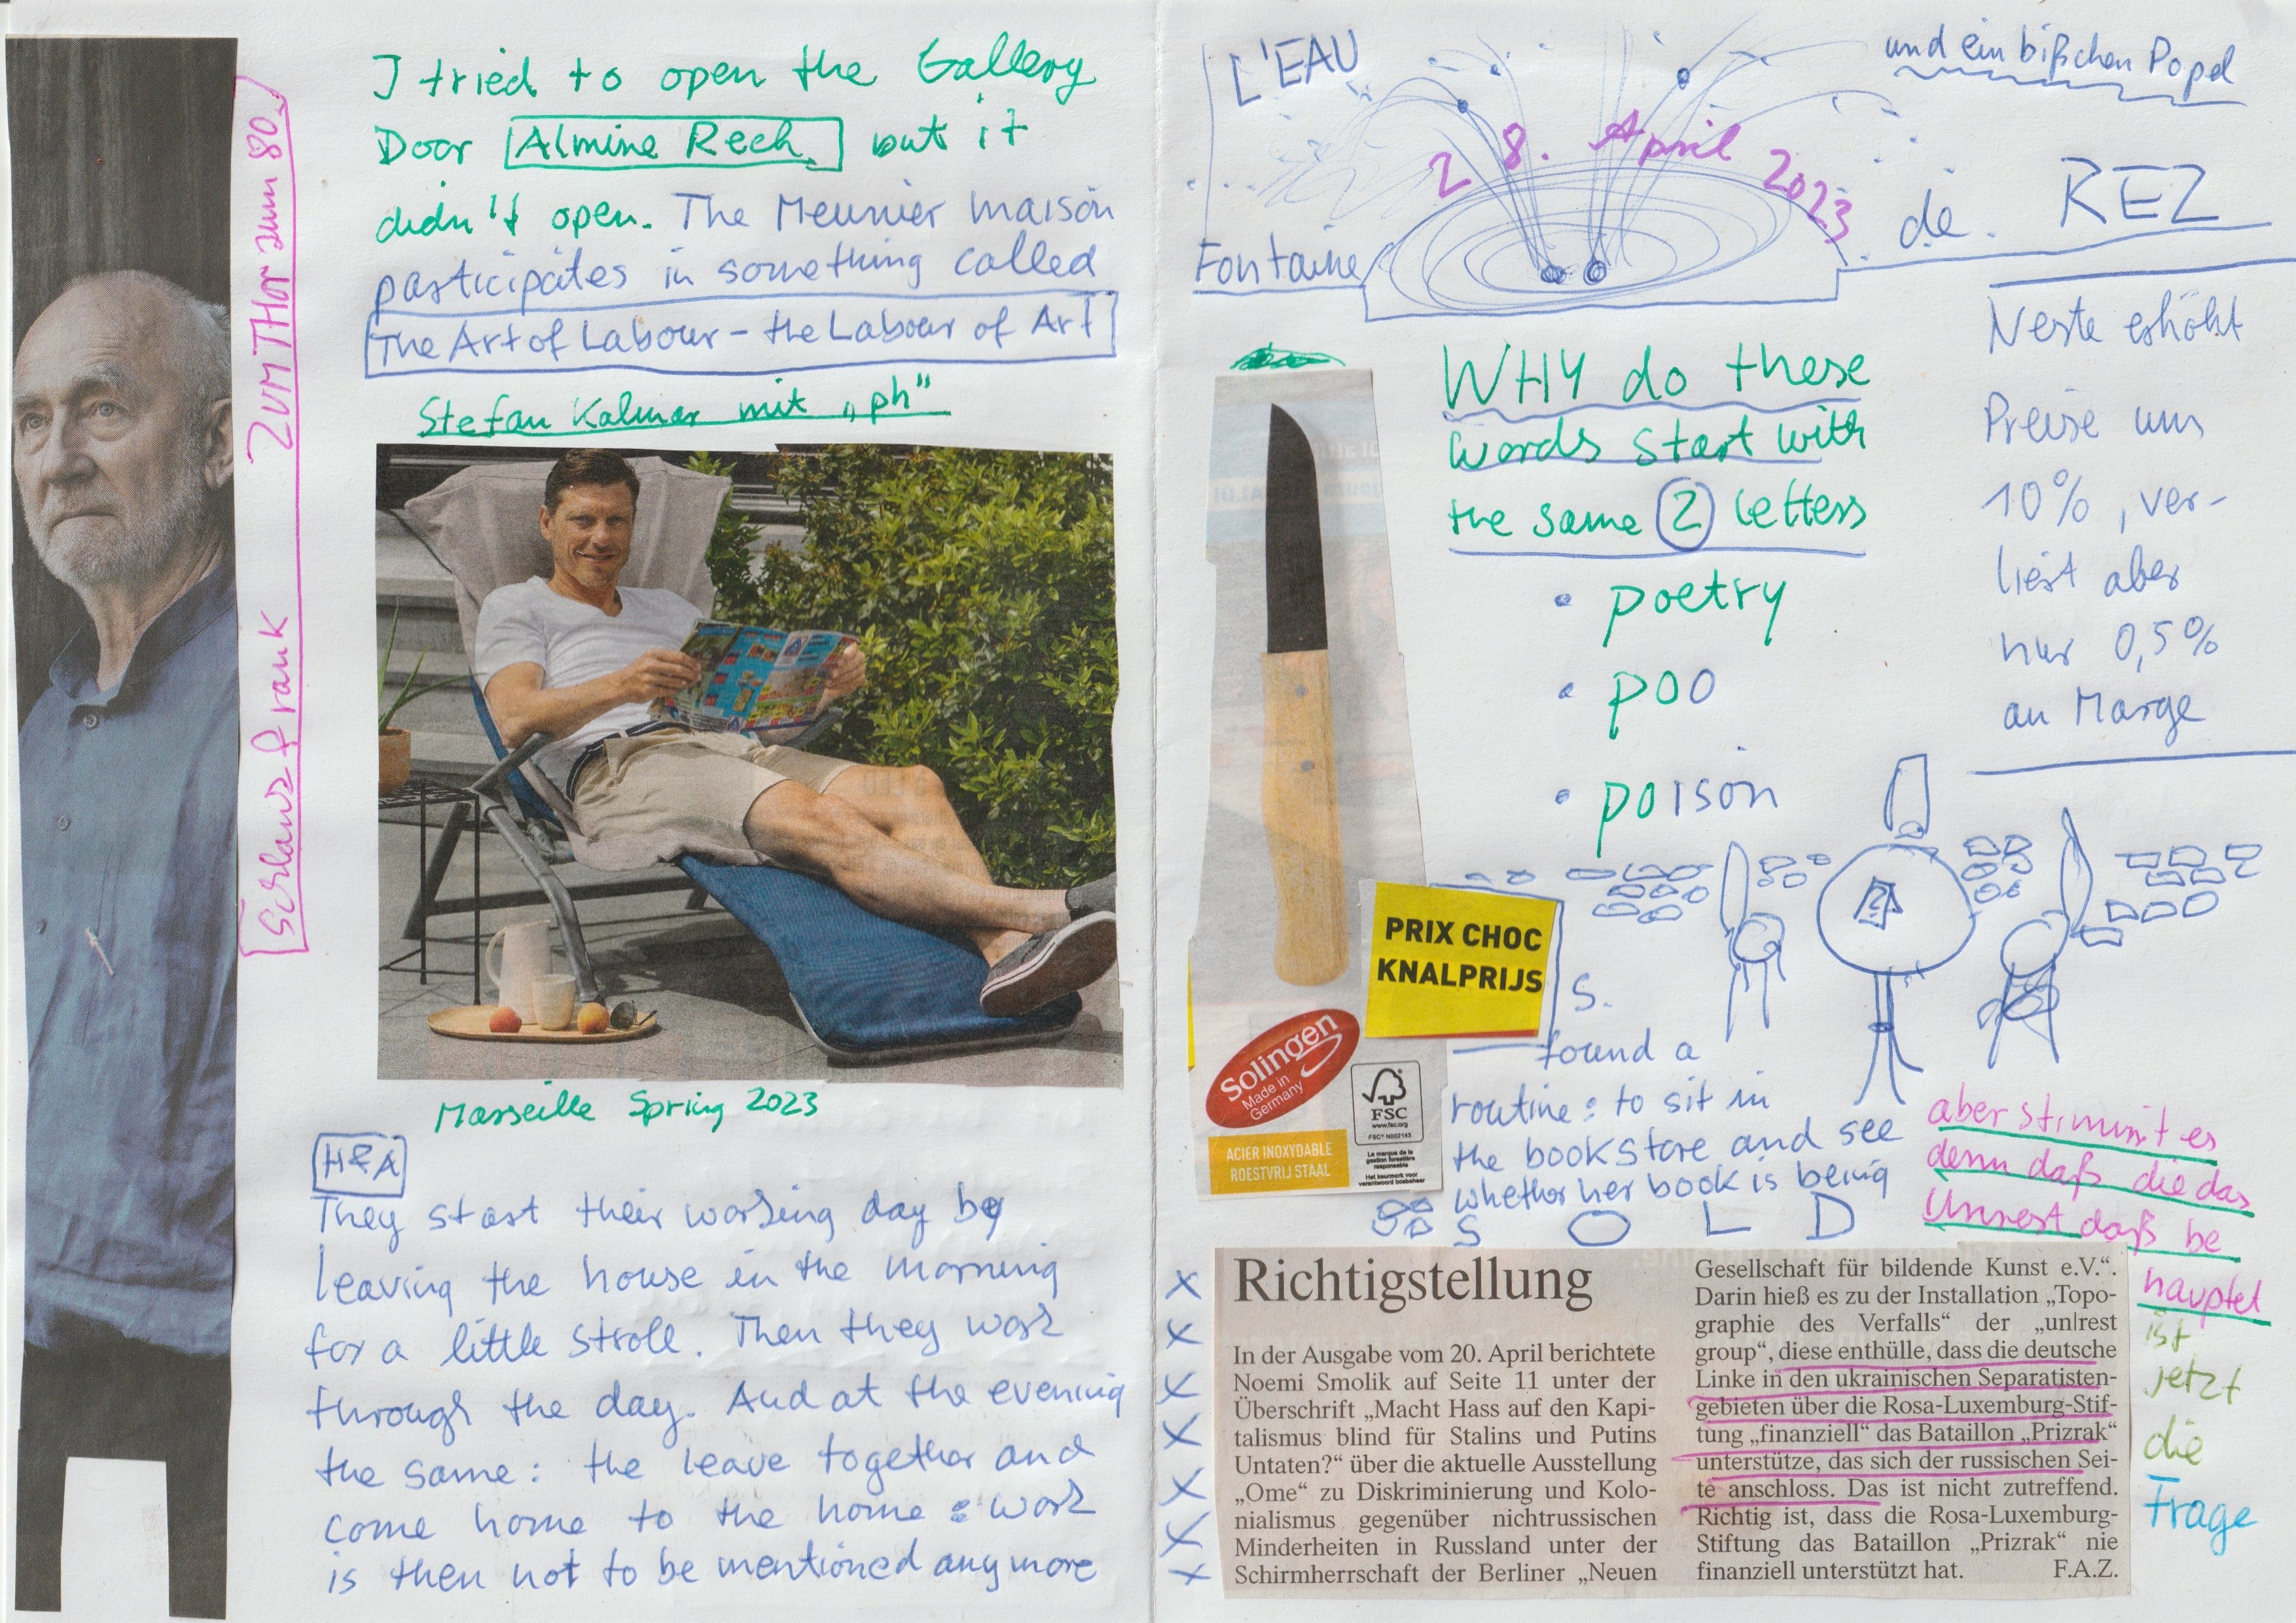 I tried to open the Gallery
Door Almine Rech but it
didn't open. The Meunier maison
participates in something called
The Art of Labour - the Labour of Art
Stefan Kalmar mit „ph“
ZUMTHor zum 80.
Schlaus & rank
Marseille Spring 2023
H&A
They start their working day by
leaving the house in the morning
for a little stroll. Then they work
through the day. And at the evening
the same: the leave together and
come home to the home: work
is then not to be mentioned anymore
L'EAU
und ein bißchen Popel
28. April 2023
Fontaine
de. REZ
WHY do these
words start with
the same 2 letters
• poetry
• poo
• poison
Neste erhöht
Preise um
10%, ver-
liert aber
nur 0,5%
an Marge
PRIX CHOC
KNALPRIJS
Solingen
Made in
Germany
FSC
www.fsc.org
FSC® N002143
La marque de la
gestion forestière
responsable
Het keurmerk voor
verantwoord bosbeheer
ACIER INOXYDABLE
ROESTVRIJ STAAL
S.
found a
routine: to sit in
the bookstore and see
whether her book is being
SOLD
aber stimmt es
denn daß die das
Unrest daß be
hauptet
ist
jetzt
die
Frage
Richtigstellung
In der Ausgabe vom 20. April berichtete
Noemi Smolik auf Seite 11 unter der
Überschrift „Macht Hass auf den Kapi-
talismus blind für Stalins und Putins
Untaten?“ über die aktuelle Ausstellung
„Ome“ zu Diskriminierung und Kolo-
nialismus gegenüber nichtrussischen
Minderheiten in Russland unter der
Schirmherrschaft der Berliner „Neuen
Gesellschaft für bildende Kunst e.V.“.
Darin hieß es zu der Installation „Topo-
graphie des Verfalls“ der „un|rest
group“, diese enthülle, dass die deutsche
Linke in den ukrainischen Separatisten-
gebieten über die Rosa-Luxemburg-Stif-
tung „finanziell“ das Bataillon „Prizrak“
unterstütze, das sich der russischen Sei-
te anschloss. Das ist nicht zutreffend.
Richtig ist, dass die Rosa-Luxemburg-
Stiftung das Bataillon „Prizrak“ nie
finanziell unterstützt hat. F.A.Z.